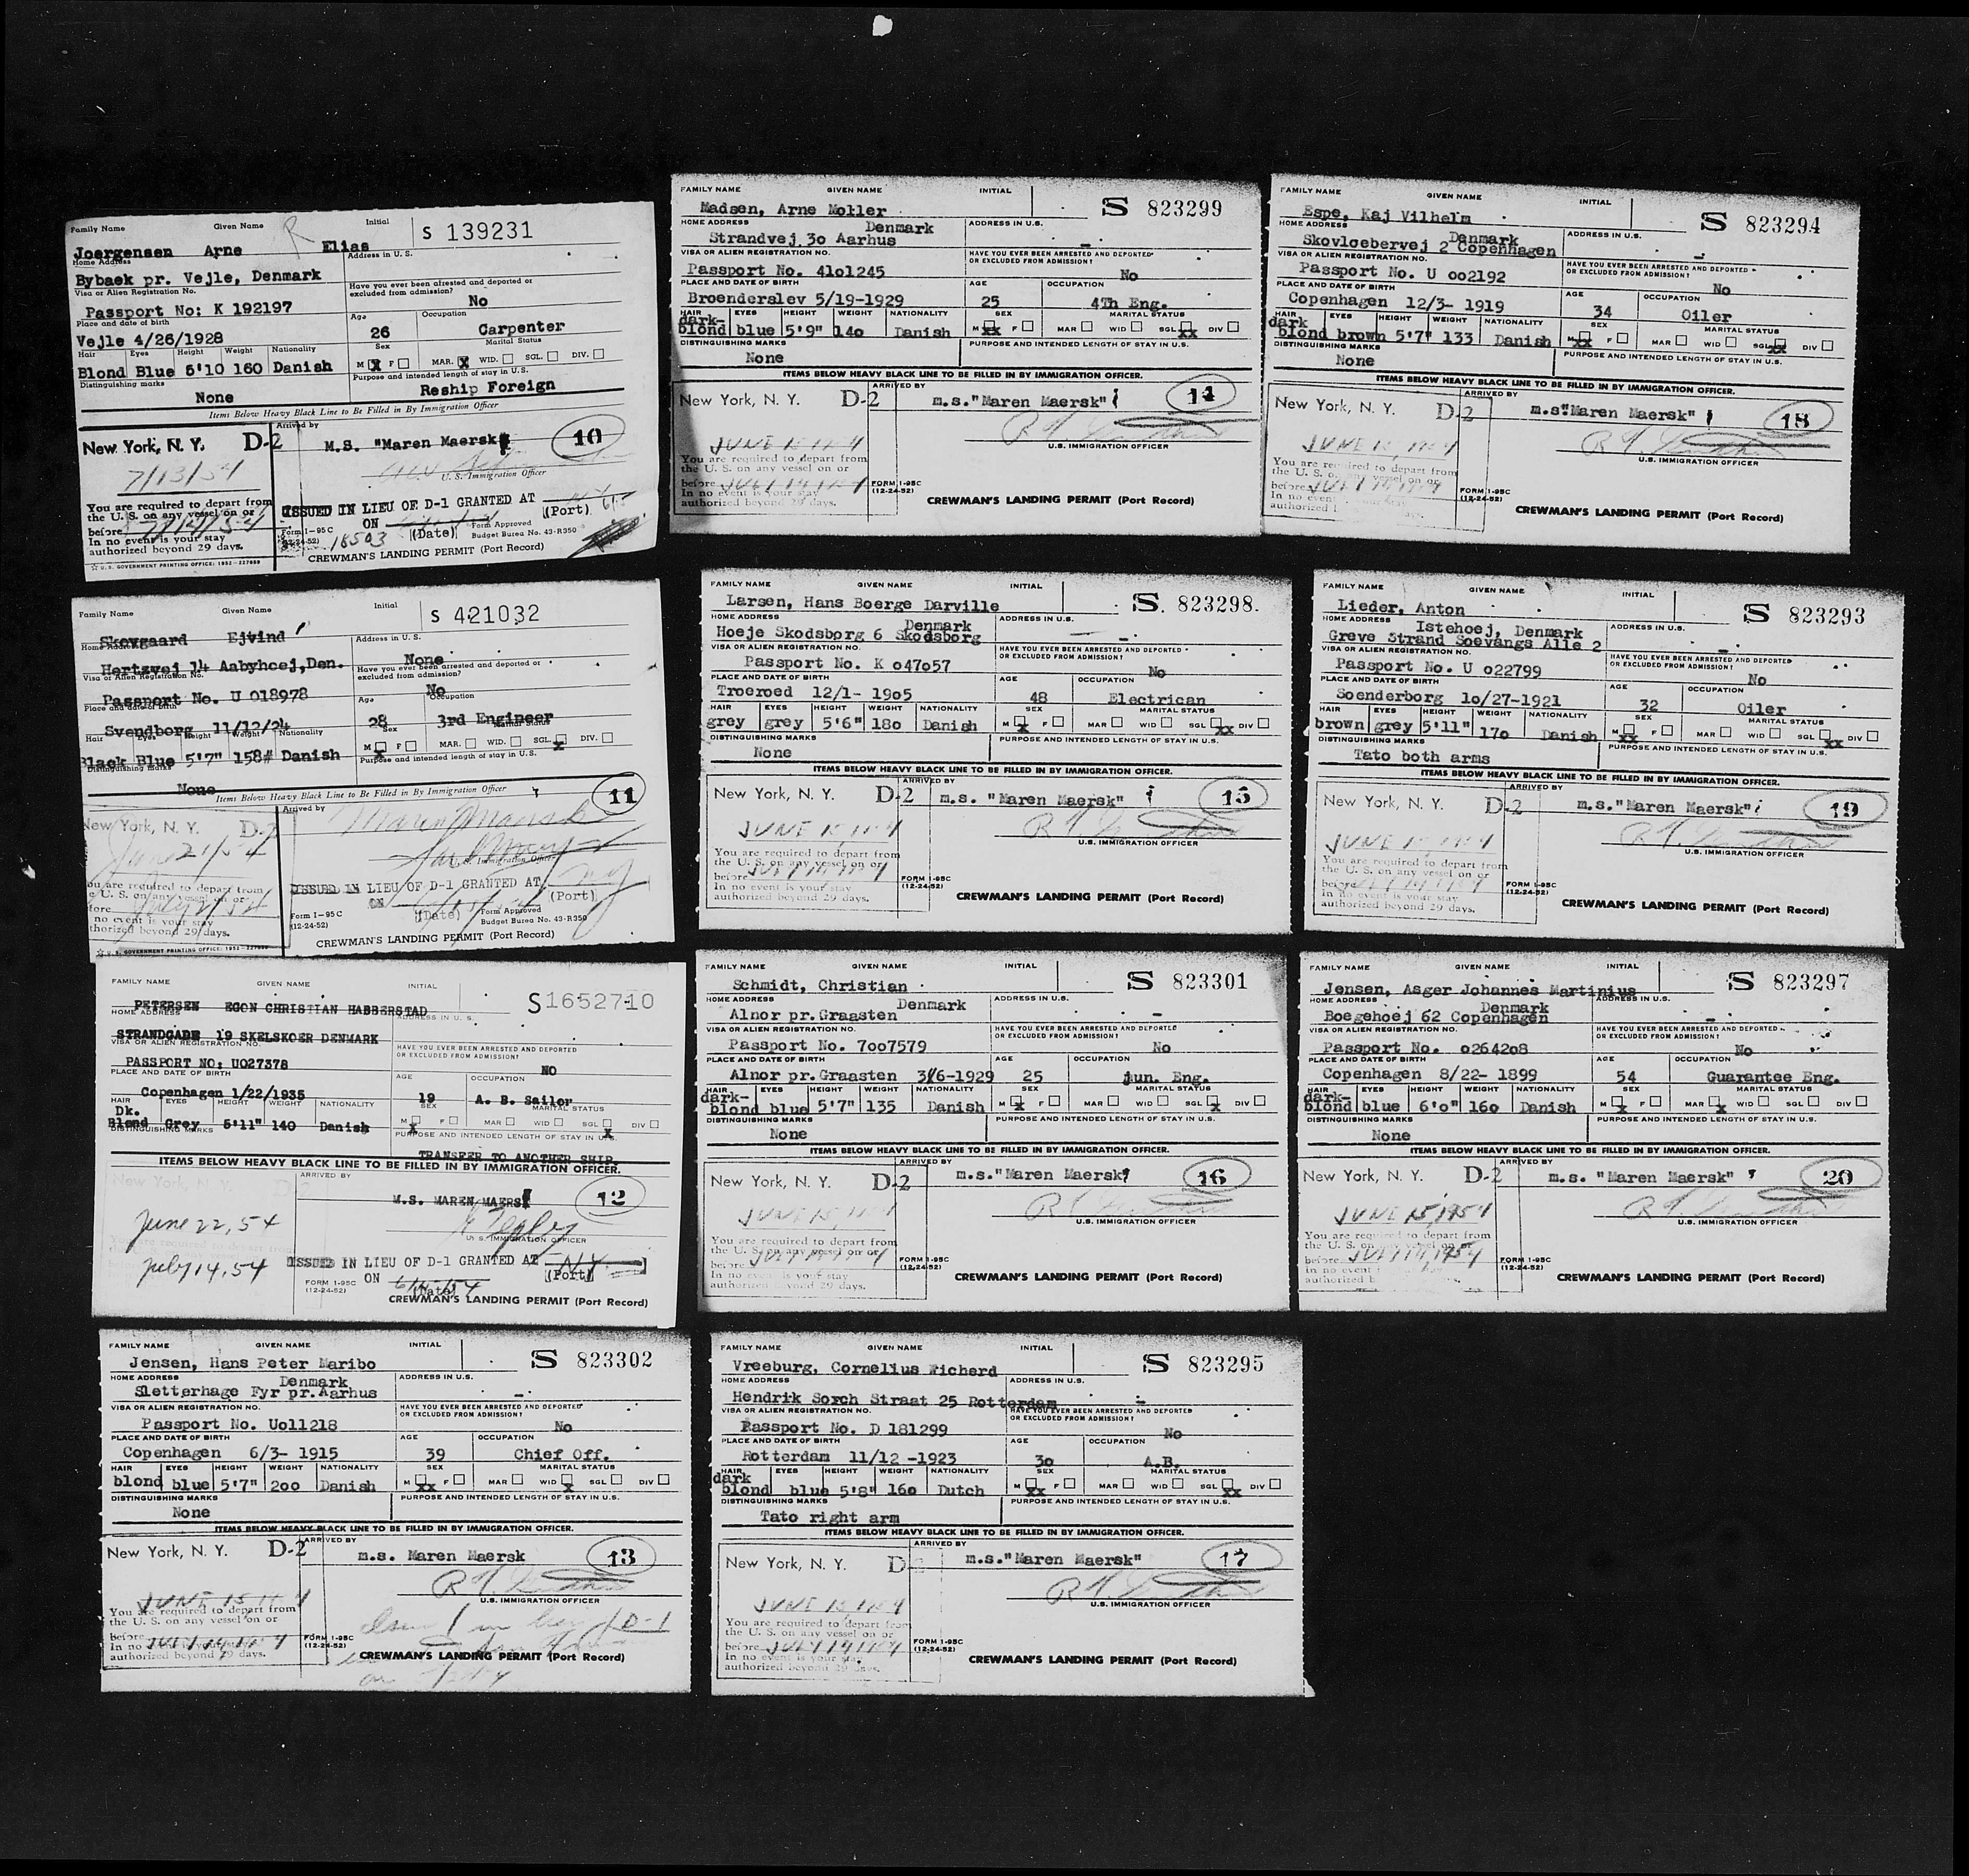 Family Name Given Name Initial S 139231
Joergensen Arne R Elias
Home Address Address in U.S.
Bybaek pr. Vejle, Denmark
Visa or Alien Registration No. Have you ever been arrested and deported or excluded from admission?
Passport No: K 192197 No
Place and date of birth Age Occupation
Vejle 4/26/1928 26 Carpenter
Hair Eyes Height Weight Nationality Sex Marital Status
Blond Blue 5'10 160 Danish M X F MAR. X WID. SGL. DIV.
Distinguishing marks Purpose and intended length of stay in U.S.
None Reship Foreign
Items Below Heavy Black Line to Be Filled in By Immigration Officer
New York, N. Y. D-2 Arrived by
M.S. "Maren Maersk" 10
7/13/54
U. S. Immigration Officer
You are required to depart from
the U. S. on any vessel on or
before
In no event is your stay
authorized beyond 29 days.
ISSUED IN LIEU OF D-1 GRANTED AT
ON (Date) (Port)
Form I-95 C (12-24-52) 18503 Form Approved Budget Burea No. 43-R350
CREWMAN'S LANDING PERMIT (Port Record)
☆ U. S. GOVERNMENT PRINTING OFFICE: 1952—227659
Family Name Given Name Initial S 421032
Skovgaard Ejvind
Home Address Address in U. S.
Hertzvej 14 Aabyhoej,Den. None
Visa or Alien Registration No. Have you ever been arrested and deported or excluded from admission?
Passport No. U 018978 No
Place and date of birth Age Occupation
Svendborg 11/12/24 28 3rd Engineer
Hair Eyes Height Weight Nationality Sex Marital Status
Black Blue 5'7" 158# Danish M X F MAR. WID. SGL. X DIV.
Distinguishing marks Purpose and intended length of stay in U.S.
None
Items Below Heavy Black Line to Be Filled in By Immigration Officer
New York, N. Y. D-2 Arrived by
Maren Maersk 11
June 21/54
U. S. Immigration Officer
You are required to depart from
the U. S. on any vessel on or
before July 21/54
In no event is your stay
authorized beyond 29 days.
ISSUED IN LIEU OF D-1 GRANTED AT NY
ON (Date) (Port)
Form I-95 C (12-24-52) Form Approved Budget Burea No. 43-R350
CREWMAN'S LANDING PERMIT (Port Record)
☆ U. S. GOVERNMENT PRINTING OFFICE: 1952—227659
FAMILY NAME GIVEN NAME INITIAL S1652710
PETERSEN EGON CHRISTIAN HABBERSTAD
HOME ADDRESS ADDRESS IN U. S.
STRANDGADE 19 SKELSKOER DENMARK
VISA OR ALIEN REGISTRATION NO. HAVE YOU EVER BEEN ARRESTED AND DEPORTED OR EXCLUDED FROM ADMISSION?
PASSPORT NO: U027378 NO
PLACE AND DATE OF BIRTH AGE OCCUPATION
Copenhagen 1/22/1935 19 A. B. Sailor
HAIR EYES HEIGHT WEIGHT NATIONALITY SEX MARITAL STATUS
Dk. Blond Grey 5'11" 140 Danish M X F MAR WID SGL X DIV
DISTINGUISHING MARKS PURPOSE AND INTENDED LENGTH OF STAY IN U.S.
TRANSFER TO ANOTHER SHIP.
ITEMS BELOW HEAVY BLACK LINE TO BE FILLED IN BY IMMIGRATION OFFICER.
New York, N. Y. ARRIVED BY
M.S. MAREN MAERSK 12
June 22, 54
U. S. IMMIGRATION OFFICER
July 14, 54
ISSUED IN LIEU OF D-1 GRANTED AT N.Y.
FORM 1-95C (12-24-52) ON (Date) (Port)
CREWMAN'S LANDING PERMIT (Port Record)
FAMILY NAME GIVEN NAME INITIAL S 823302
Jensen, Hans Peter Maribo
HOME ADDRESS ADDRESS IN U.S.
Denmark
Sletterhage Fyr pr. Aarhus -
VISA OR ALIEN REGISTRATION NO. HAVE YOU EVER BEEN ARRESTED AND DEPORTED OR EXCLUDED FROM ADMISSION?
Passport No. Uo11218 No
PLACE AND DATE OF BIRTH AGE OCCUPATION
Copenhagen 6/3- 1915 39 Chief Off.
HAIR EYES HEIGHT WEIGHT NATIONALITY SEX MARITAL STATUS
blond blue 5'7" 200 Danish M xx F MAR WID x SGL DIV
DISTINGUISHING MARKS PURPOSE AND INTENDED LENGTH OF STAY IN U.S.
None
ITEMS BELOW HEAVY BLACK LINE TO BE FILLED IN BY IMMIGRATION OFFICER.
New York, N. Y. D-2 ARRIVED BY
m.s. Maren Maersk 13
JUNE 15
U.S. IMMIGRATION OFFICER
You are required to depart from
the U. S. on any vessel on or
before JULY 14
In no
authorized beyond 29 days.
in lieu of D-1
FORM 1-95C (12-24-52)
CREWMAN'S LANDING PERMIT (Port Record)
FAMILY NAME GIVEN NAME INITIAL S 823299
Madsen, Arne Moller
HOME ADDRESS ADDRESS IN U.S.
Denmark
Strandvej 3o Aarhus -
VISA OR ALIEN REGISTRATION NO. HAVE YOU EVER BEEN ARRESTED AND DEPORTED OR EXCLUDED FROM ADMISSION?
Passport No. 41o1245 No
PLACE AND DATE OF BIRTH AGE OCCUPATION
Broenderslev 5/19-1929 25 4Th Eng.
HAIR EYES HEIGHT WEIGHT NATIONALITY SEX MARITAL STATUS
dark-
blond blue 5'9" 14o Danish M xx F MAR WID SGL xx DIV
DISTINGUISHING MARKS PURPOSE AND INTENDED LENGTH OF STAY IN U.S.
None
ITEMS BELOW HEAVY BLACK LINE TO BE FILLED IN BY IMMIGRATION OFFICER.
New York, N. Y. D-2 ARRIVED BY
m.s."Maren Maersk" 14
JUNE 15
U.S. IMMIGRATION OFFICER
You are required to depart from
the U. S. on any vessel on or
before JULY 14
In no event is your stay
authorized beyond 29 days.
FORM 1-95C (12-24-52)
CREWMAN'S LANDING PERMIT (Port Record)
FAMILY NAME GIVEN NAME INITIAL S 823298
Larsen, Hans Boerge Darville
HOME ADDRESS ADDRESS IN U.S.
Denmark
Hoeje Skodsborg 6 Skodsborg -
VISA OR ALIEN REGISTRATION NO. HAVE YOU EVER BEEN ARRESTED AND DEPORTED OR EXCLUDED FROM ADMISSION?
Passport No. K o47o57 No
PLACE AND DATE OF BIRTH AGE OCCUPATION
Troeroed 12/1- 19o5 48 Electrican
HAIR EYES HEIGHT WEIGHT NATIONALITY SEX MARITAL STATUS
grey grey 5'6" 18o Danish M x F MAR WID SGL xx DIV
DISTINGUISHING MARKS PURPOSE AND INTENDED LENGTH OF STAY IN U.S.
None
ITEMS BELOW HEAVY BLACK LINE TO BE FILLED IN BY IMMIGRATION OFFICER.
New York, N. Y. D-2 ARRIVED BY
m.s. "Maren Maersk" 15
JUNE 15
U.S. IMMIGRATION OFFICER
You are required to depart from
the U. S. on any vessel on or
before JULY 14
In no event is your stay
authorized beyond 29 days.
FORM 1-95C (12-24-52)
CREWMAN'S LANDING PERMIT (Port Record)
FAMILY NAME GIVEN NAME INITIAL S 823301
Schmidt, Christian
HOME ADDRESS ADDRESS IN U.S.
Denmark
Alnor pr. Graasten -
VISA OR ALIEN REGISTRATION NO. HAVE YOU EVER BEEN ARRESTED AND DEPORTED OR EXCLUDED FROM ADMISSION?
Passport No. 7oo7579 No
PLACE AND DATE OF BIRTH AGE OCCUPATION
Alnor pr. Graasten 3/6-1929 25 jun. Eng.
HAIR EYES HEIGHT WEIGHT NATIONALITY SEX MARITAL STATUS
dark-
blond blue 5'7" 135 Danish M x F MAR WID SGL x DIV
DISTINGUISHING MARKS PURPOSE AND INTENDED LENGTH OF STAY IN U.S.
None
ITEMS BELOW HEAVY BLACK LINE TO BE FILLED IN BY IMMIGRATION OFFICER.
New York, N. Y. D-2 ARRIVED BY
m.s."Maren Maersk" 16
JUNE 15
U.S. IMMIGRATION OFFICER
You are required to depart from
the U. S. on any vessel on or
before JULY 14
In no event is your stay
authorized beyond 29 days.
FORM 1-95C (12-24-52)
CREWMAN'S LANDING PERMIT (Port Record)
FAMILY NAME GIVEN NAME INITIAL S 823295
Vreeburg, Cornelius Richerd
HOME ADDRESS ADDRESS IN U.S.
Hendrik Sorch Straat 25 Rotterdam -
VISA OR ALIEN REGISTRATION NO. HAVE YOU EVER BEEN ARRESTED AND DEPORTED OR EXCLUDED FROM ADMISSION?
Passport No. D 181299 No
PLACE AND DATE OF BIRTH AGE OCCUPATION
Rotterdam 11/12 -1923 3o A.B.
HAIR EYES HEIGHT WEIGHT NATIONALITY SEX MARITAL STATUS
dark
blond blue 5'8" 16o Dutch M xx F MAR WID SGL xx DIV
DISTINGUISHING MARKS PURPOSE AND INTENDED LENGTH OF STAY IN U.S.
Tato right arm
ITEMS BELOW HEAVY BLACK LINE TO BE FILLED IN BY IMMIGRATION OFFICER.
New York, N. Y. D-2 ARRIVED BY
m.s."Maren Maersk" 17
JUNE 15
U.S. IMMIGRATION OFFICER
You are required to depart from
the U. S. on any vessel on or
before JULY 14
In no event is your stay
authorized beyond 29 days.
FORM 1-95C (12-24-52)
CREWMAN'S LANDING PERMIT (Port Record)
FAMILY NAME GIVEN NAME INITIAL S 823294
Espe, Kaj Vilhelm
HOME ADDRESS ADDRESS IN U.S.
Denmark
Skovloebervej 2 Copenhagen -
VISA OR ALIEN REGISTRATION NO. HAVE YOU EVER BEEN ARRESTED AND DEPORTED OR EXCLUDED FROM ADMISSION?
Passport No. U oo2192 No
PLACE AND DATE OF BIRTH AGE OCCUPATION
Copenhagen 12/3- 1919 34 Oiler
HAIR EYES HEIGHT WEIGHT NATIONALITY SEX MARITAL STATUS
dark
blond brown 5'7" 133 Danish M xx F MAR WID SGL xx DIV
DISTINGUISHING MARKS PURPOSE AND INTENDED LENGTH OF STAY IN U.S.
None
ITEMS BELOW HEAVY BLACK LINE TO BE FILLED IN BY IMMIGRATION OFFICER.
New York, N. Y. D-2 ARRIVED BY
m.s"Maren Maersk" 18
JUNE 15, 1954
U.S. IMMIGRATION OFFICER
You are required to depart from
the U. S. on any vessel on or
before JULY 14
In no event
authorized days.
FORM 1-95C (12-24-52)
CREWMAN'S LANDING PERMIT (Port Record)
FAMILY NAME GIVEN NAME INITIAL S 823293
Lieder, Anton
HOME ADDRESS ADDRESS IN U.S.
Istehoej, Denmark
Greve Strand Soevangs Alle 2 -
VISA OR ALIEN REGISTRATION NO. HAVE YOU EVER BEEN ARRESTED AND DEPORTED OR EXCLUDED FROM ADMISSION?
Passport No. U o22799 No
PLACE AND DATE OF BIRTH AGE OCCUPATION
Soenderborg 1o/27-1921 32 Oiler
HAIR EYES HEIGHT WEIGHT NATIONALITY SEX MARITAL STATUS
brown grey 5'11" 17o Danish M xx F MAR WID SGL xx DIV
DISTINGUISHING MARKS PURPOSE AND INTENDED LENGTH OF STAY IN U.S.
Tato both arms
ITEMS BELOW HEAVY BLACK LINE TO BE FILLED IN BY IMMIGRATION OFFICER.
New York, N. Y. D-2 ARRIVED BY
m.s."Maren Maersk" 19
JUNE 15
U.S. IMMIGRATION OFFICER
You are required to depart from
the U. S. on any vessel on or
before
In no event is your stay
authorized beyond 29 days.
FORM 1-95C (12-24-52)
CREWMAN'S LANDING PERMIT (Port Record)
FAMILY NAME GIVEN NAME INITIAL S 823297
Jensen, Asger Johannes Martinius
HOME ADDRESS ADDRESS IN U.S.
Denmark
Boegehoej 62 Copenhagen -
VISA OR ALIEN REGISTRATION NO. HAVE YOU EVER BEEN ARRESTED AND DEPORTED OR EXCLUDED FROM ADMISSION?
Passport No. o2642o8 No
PLACE AND DATE OF BIRTH AGE OCCUPATION
Copenhagen 8/22- 1899 54 Guarantee Eng.
HAIR EYES HEIGHT WEIGHT NATIONALITY SEX MARITAL STATUS
dark-
blond blue 6'o" 16o Danish M x F MAR x WID SGL DIV
DISTINGUISHING MARKS PURPOSE AND INTENDED LENGTH OF STAY IN U.S.
None
ITEMS BELOW HEAVY BLACK LINE TO BE FILLED IN BY IMMIGRATION OFFICER.
New York, N. Y. D-2 ARRIVED BY
m.s. "Maren Maersk" 20
JUNE 15, 1954
U.S. IMMIGRATION OFFICER
You are required to depart from
the U. S. on any vessel on or
before JULY 14, 1954
In no event
authorized
FORM 1-95C (12-24-52)
CREWMAN'S LANDING PERMIT (Port Record)